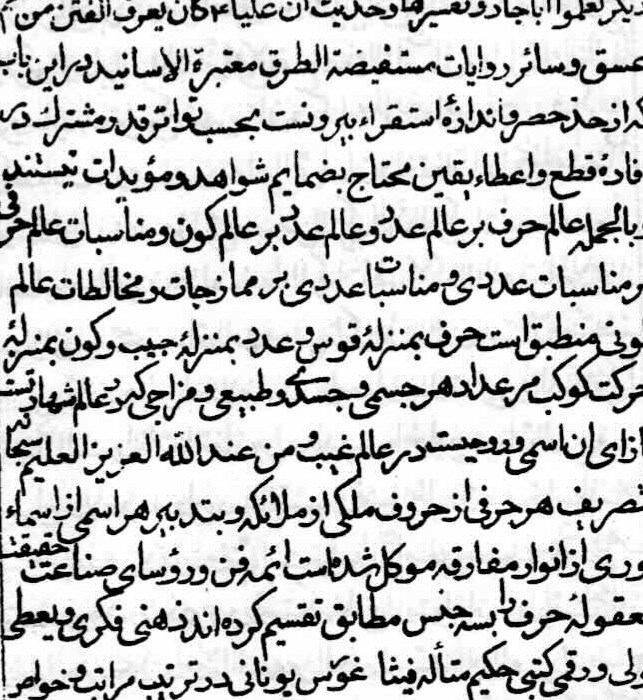 دیگر تعلموا اباجاد و تفسیرها و حدیث ان علیا ع کان یعرف الفتن من
عسق و سائر روایات مستفیضة الطرق معتبرة الاسانید در این باب
که از حد حصر و اندازهٔ استقراء بیرونست بحسب تواتر قدر مشترک در
فادهٔ قطع و اعطاء یقین محتاج بضمایم شواهد و مؤیدات نیستند
و بالجمله عالم حرف بر عالم عدد و عالم عدد بر عالم کون و مناسبات عالم حرفی
بر مناسبات عددی و مناسبات عددی بر ممازجات و مخالطات عالم
کونی منطبق است حرف بمنزلهٔ قوس و عدد بمنزلهٔ جیب و کون بمنزلهٔ
حرکت کوکب مر عداد هر جسمی و جسدی و طبیعی و مزاجی که در عالم شهادتست
ازای آن اسمی و روحیست در عالم غیب و من عند الله العزیز العلیم
تصریف هر حرفی از حروف ملکی از ملائکه و بتدبیر هر اسمی از اسماء
نوری از انوار مفارقه موکل شده است ائمه فن و رؤسای صناعت حقیقت
معقولهٔ حرف را بسه جنس مطابق تقسیم کرده اند ذهنی فکری و لفظی
و رقمی کتبی حکیم متأله فیثاغوس یونانی در ترتیب مراتب و خواص